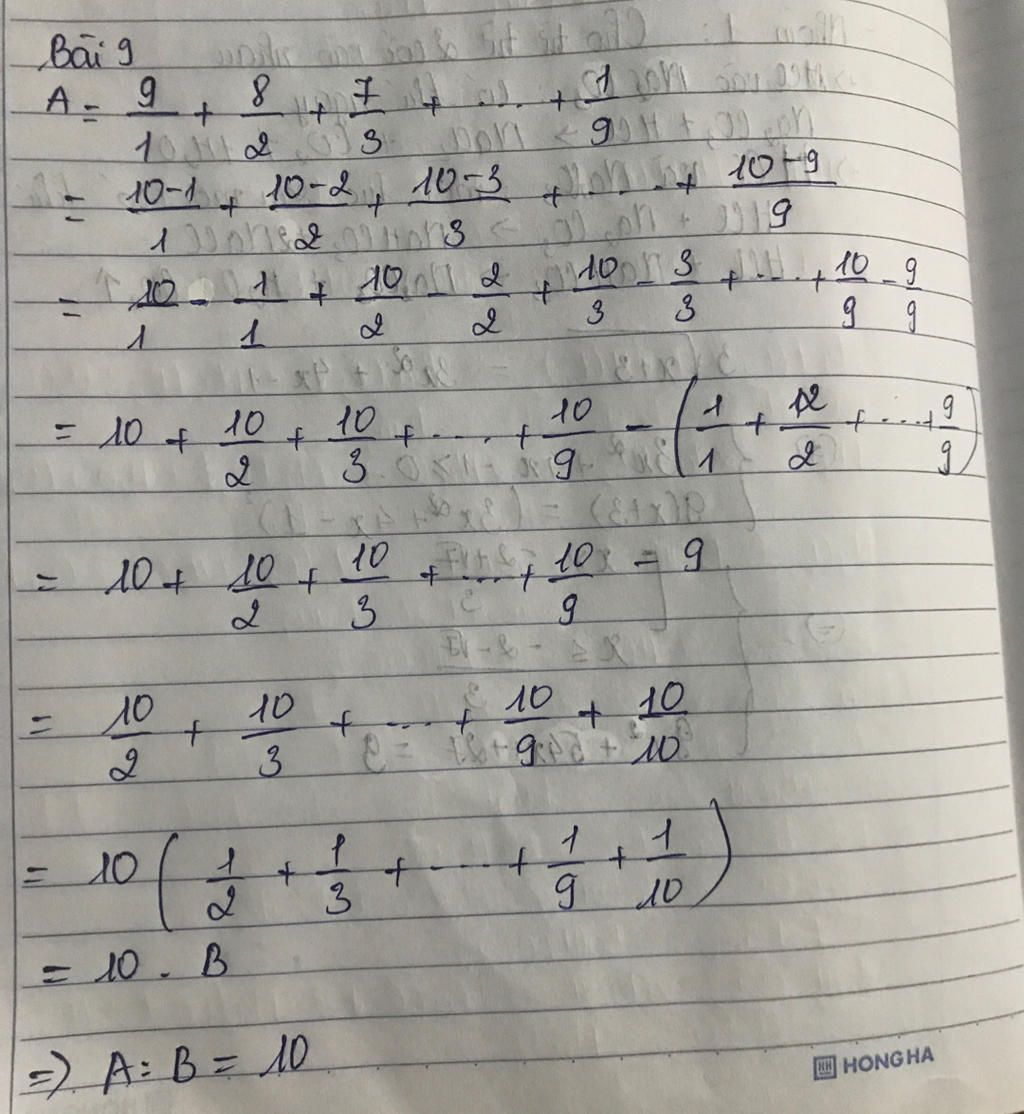 Bài 9
A = 9/1 + 8/2 + 7/3 + .... + 1/9
= 10-1/1 + 10-2/2 + 10-3/3 + ..... + 10-9/9
= 10/1 - 1/1 + 10/2 - 2/2 + 10/3 - 3/3 + .... + 10/9 - 9/9
= 10 + 10/2 + 10/3 + ..... + 10/9 - (1/1 + 2/2 + .... + 9/9)
= 10 + 10/2 + 10/3 + .... + 10/9 - 9
= 10/2 + 10/3 + .... + 10/9 + 10/10
= 10 (1/2 + 1/3 + ..... + 1/9 + 1/10)
= 10 . B
=> A : B = 10
HH HONG HA